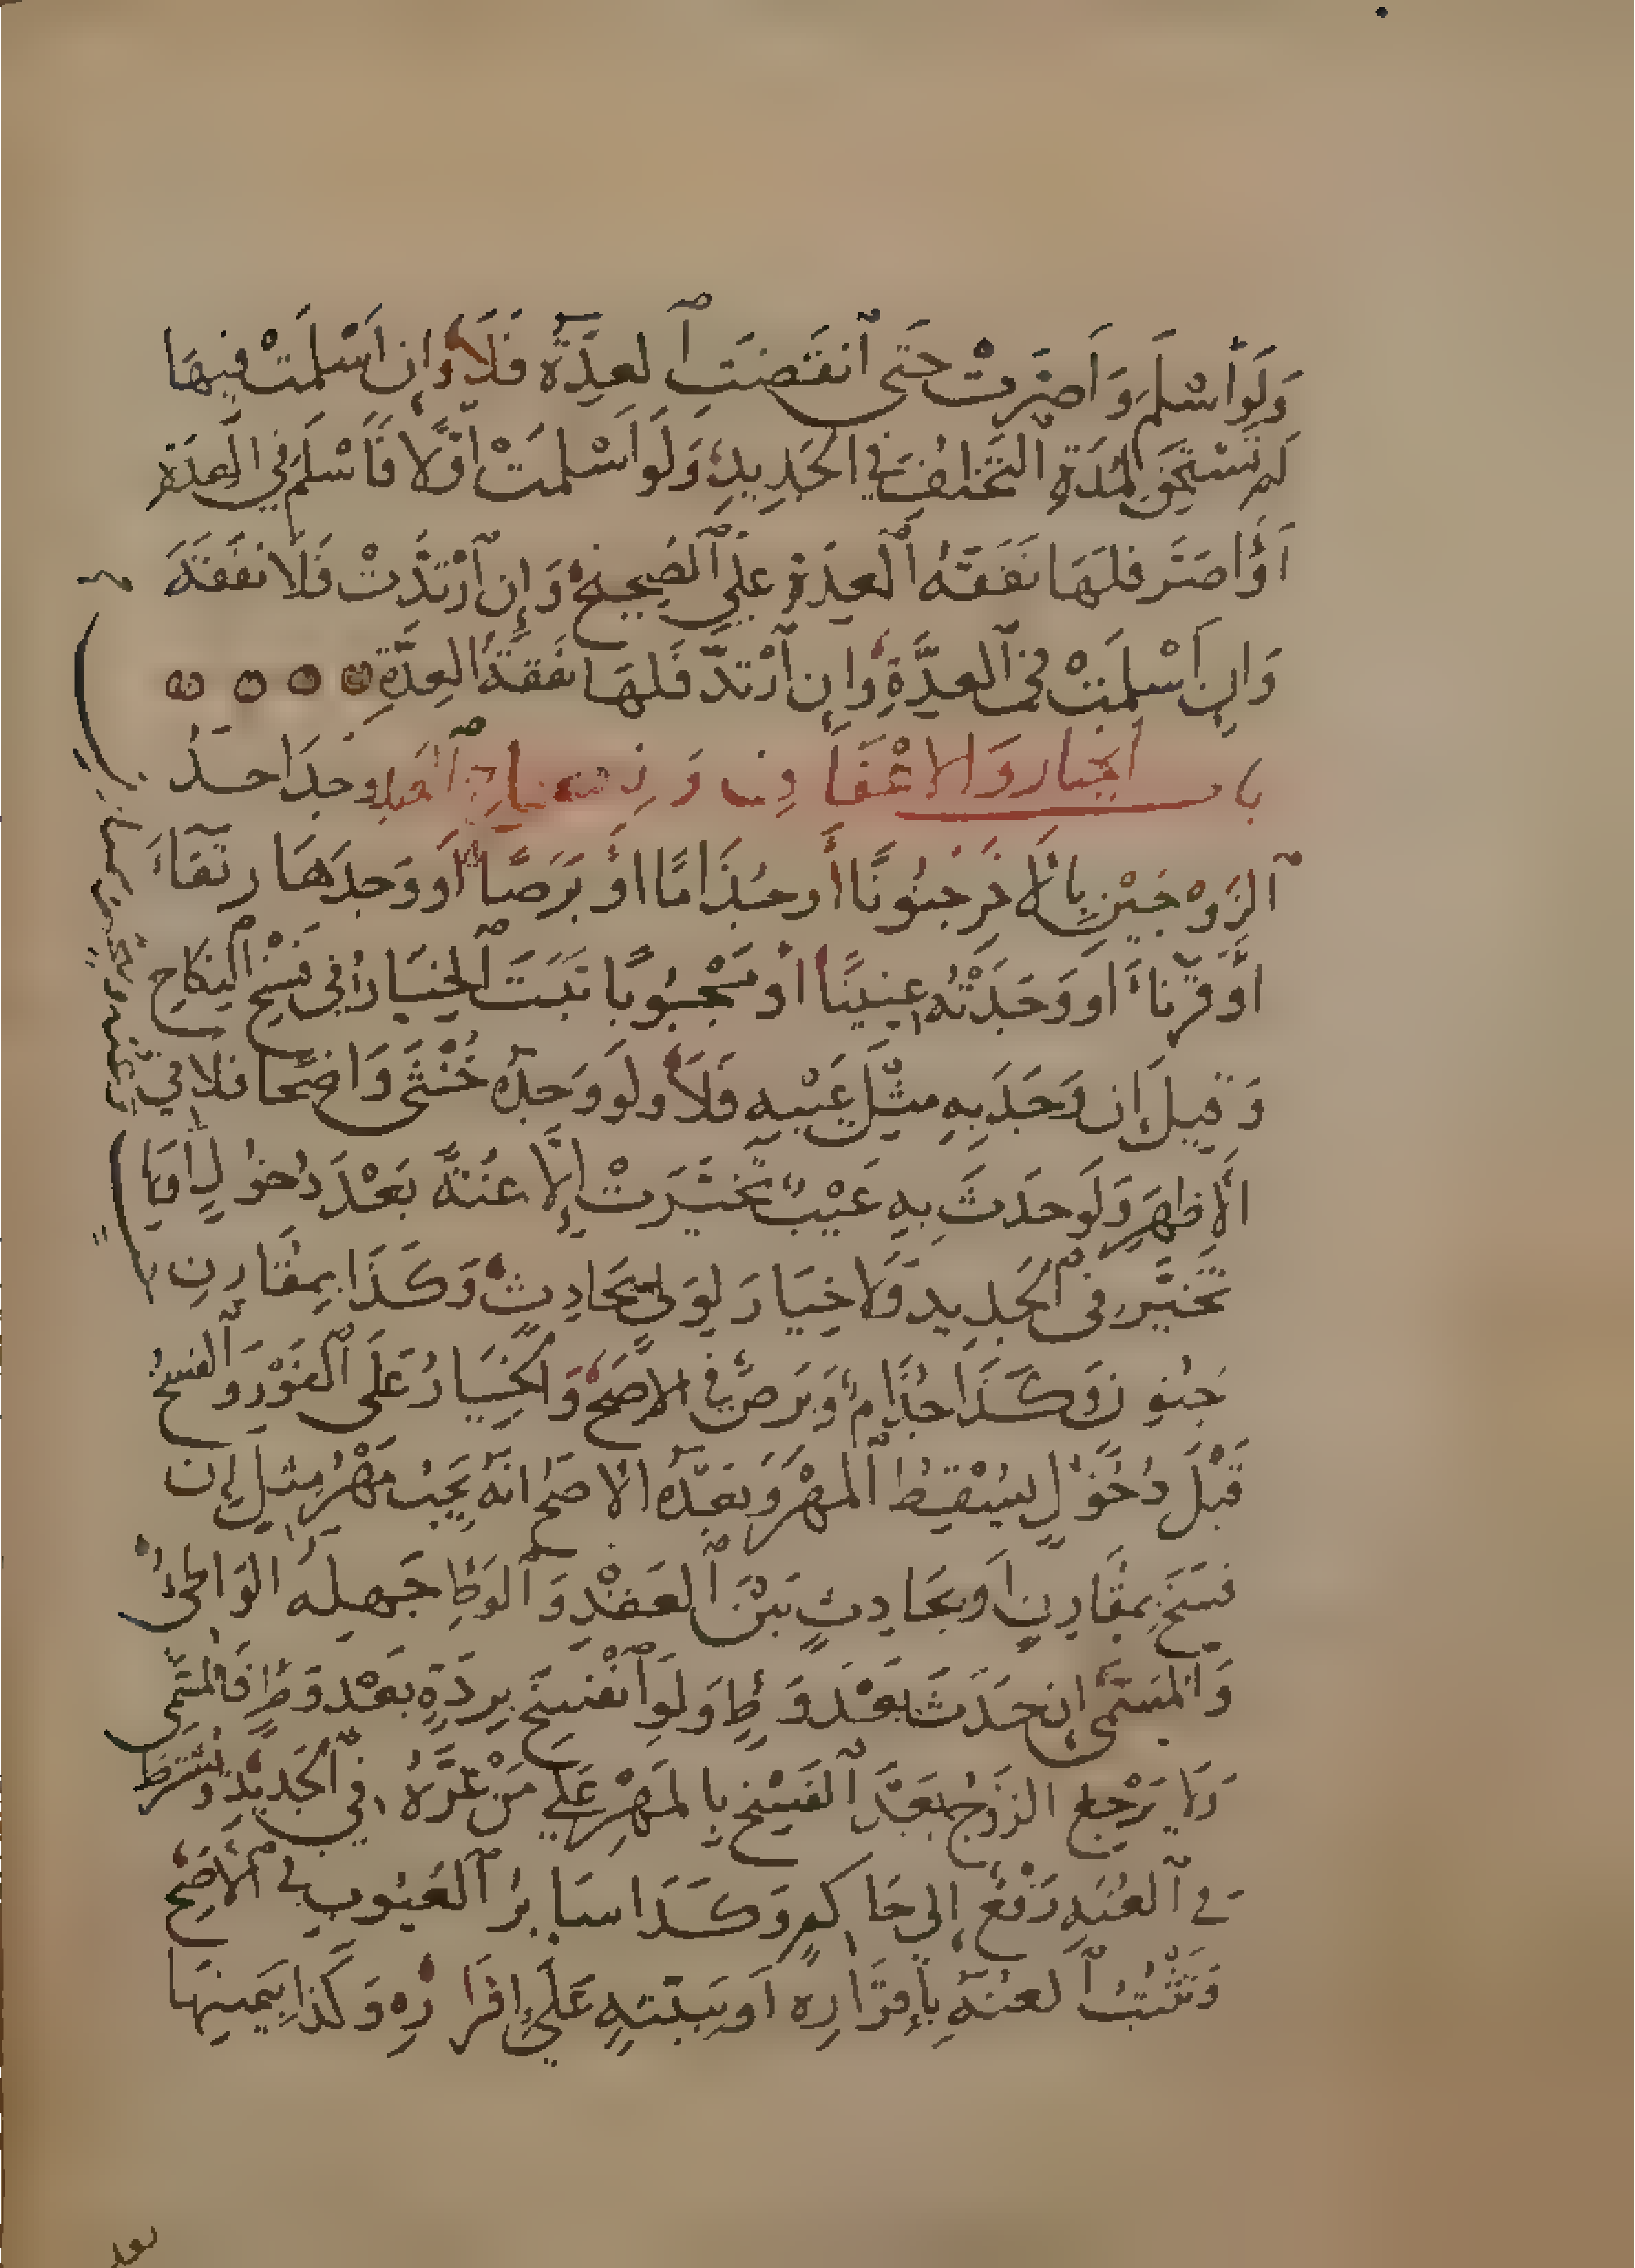 وَلَوْ أَسْلَمَ وَأَصَرَّتْ حَتَّى ٱنْقَضَتِ ٱلْعِدَّةُ فَلَا وَإِنْ أَسْلَمَتْ فِيهَا
لَمْ تَسْتَحِقَّ لِمُدَّةِ ٱلتَّخَلُّفِ فِي الْجَدِيدِ وَلَوْ أَسْلَمَتْ أَوَّلًا فَأَسْلَمَ فِي الْعِدَّةِ
أَوْ أَصَرَّ فَلَهَا نَفَقَةُ ٱلْعِدَّةِ عَلَى ٱلصَّحِيحِ وَإِنِ ٱرْتَدَّتْ فَلَا نَفَقَةَ
وَإِنْ أَسْلَمَتْ فِي ٱلْعِدَّةِ وَإِنِ ٱرْتَدَّ فَلَهَا نَفَقَةُ الْعِدَّةِ
باب الخيار وَالْإِعْفَافِ وَنِكَاحِ ٱلْعَبْدِ وجَدَ أَحَدُ
ٱلزَّوْجَيْنِ بِالْآخَرِ جُنُونًا أَوْ جُذَامًا أَوْ بَرَصًا أَوْ وَجَدَهَا رَتْقَاءَ
أَوْ قَرْنَاءَ أَوْ وَجَدَتْهُ عِنِّينًا أَوْ مَجْبُوبًا ثَبَتَ ٱلْخِيَارُ فِي فَسْخِ ٱلنِّكَاحِ
وَقِيلَ إِنْ وَجَدَ بِهِ مِثْلَ عَيْبِهِ فَلَا وَلَوْ وَجَدَهُ خُنْثَى وَاضِحًا فَلَا فِي
الْأَظْهَرِ وَلَوْ حَدَثَ بِهِ عَيْبٌ تَخَيَّرَتْ إِلَّا عُنَّةً بَعْدَ دُخُولٍ أَوْ بِهَا
تَخَيَّرَ فِي ٱلْجَدِيدِ وَلَا خِيَارَ لِوَلِيٍّ بِحَادِثٍ وَكَذَا بِمُقَارِنِ
جُنُونٍ وَكَذَا جُذَامٌ وَبَرَصٌ فِي الْأَصَحِّ وَالْخِيَارُ عَلَى ٱلْفَوْرِ وَٱلْفَسْخُ
قَبْلَ دُخُولٍ يُسْقِطُ ٱلْمَهْرَ وَبَعْدَهُ الْأَصَحُّ أَنَّهُ يَجِبُ مَهْرُ مِثْلٍ إِنْ
فُسِخَ بِمُقَارِنٍ أَوْ بِحَادِثٍ بَيْنَ ٱلْعَقْدِ وَٱلْوَطْءِ جَهِلَهُ الْوَاطِئُ
وَٱلْمُسَمَّى إِنْ حَدَثَ بَعْدَ وَطْءٍ وَلَوِ ٱنْفَسَخَ بِرِدَّةٍ بَعْدَ وَطْءٍ فَالْمُسَمَّى
وَلَا يَرْجِعُ الزَّوْجُ بَعْدَ ٱلْفَسْخِ بِالْمَهْرِ عَلَى مَنْ غَرَّهُ فِي ٱلْجَدِيدِ وَيُشْتَرَطُ
فِي ٱلْعُنَّةِ رَفْعٌ إِلَى حَاكِمٍ وَكَذَا سَائِرُ ٱلْعُيُوبِ فِي ٱلْأَصَحِّ
وَتَثْبُتُ ٱلْعُنَّةُ بِإِقْرَارِهِ أَوْ بِبَيِّنَةٍ عَلَى إِقْرَارِهِ وَكَذَا بِيَمِينِهَا
بعد